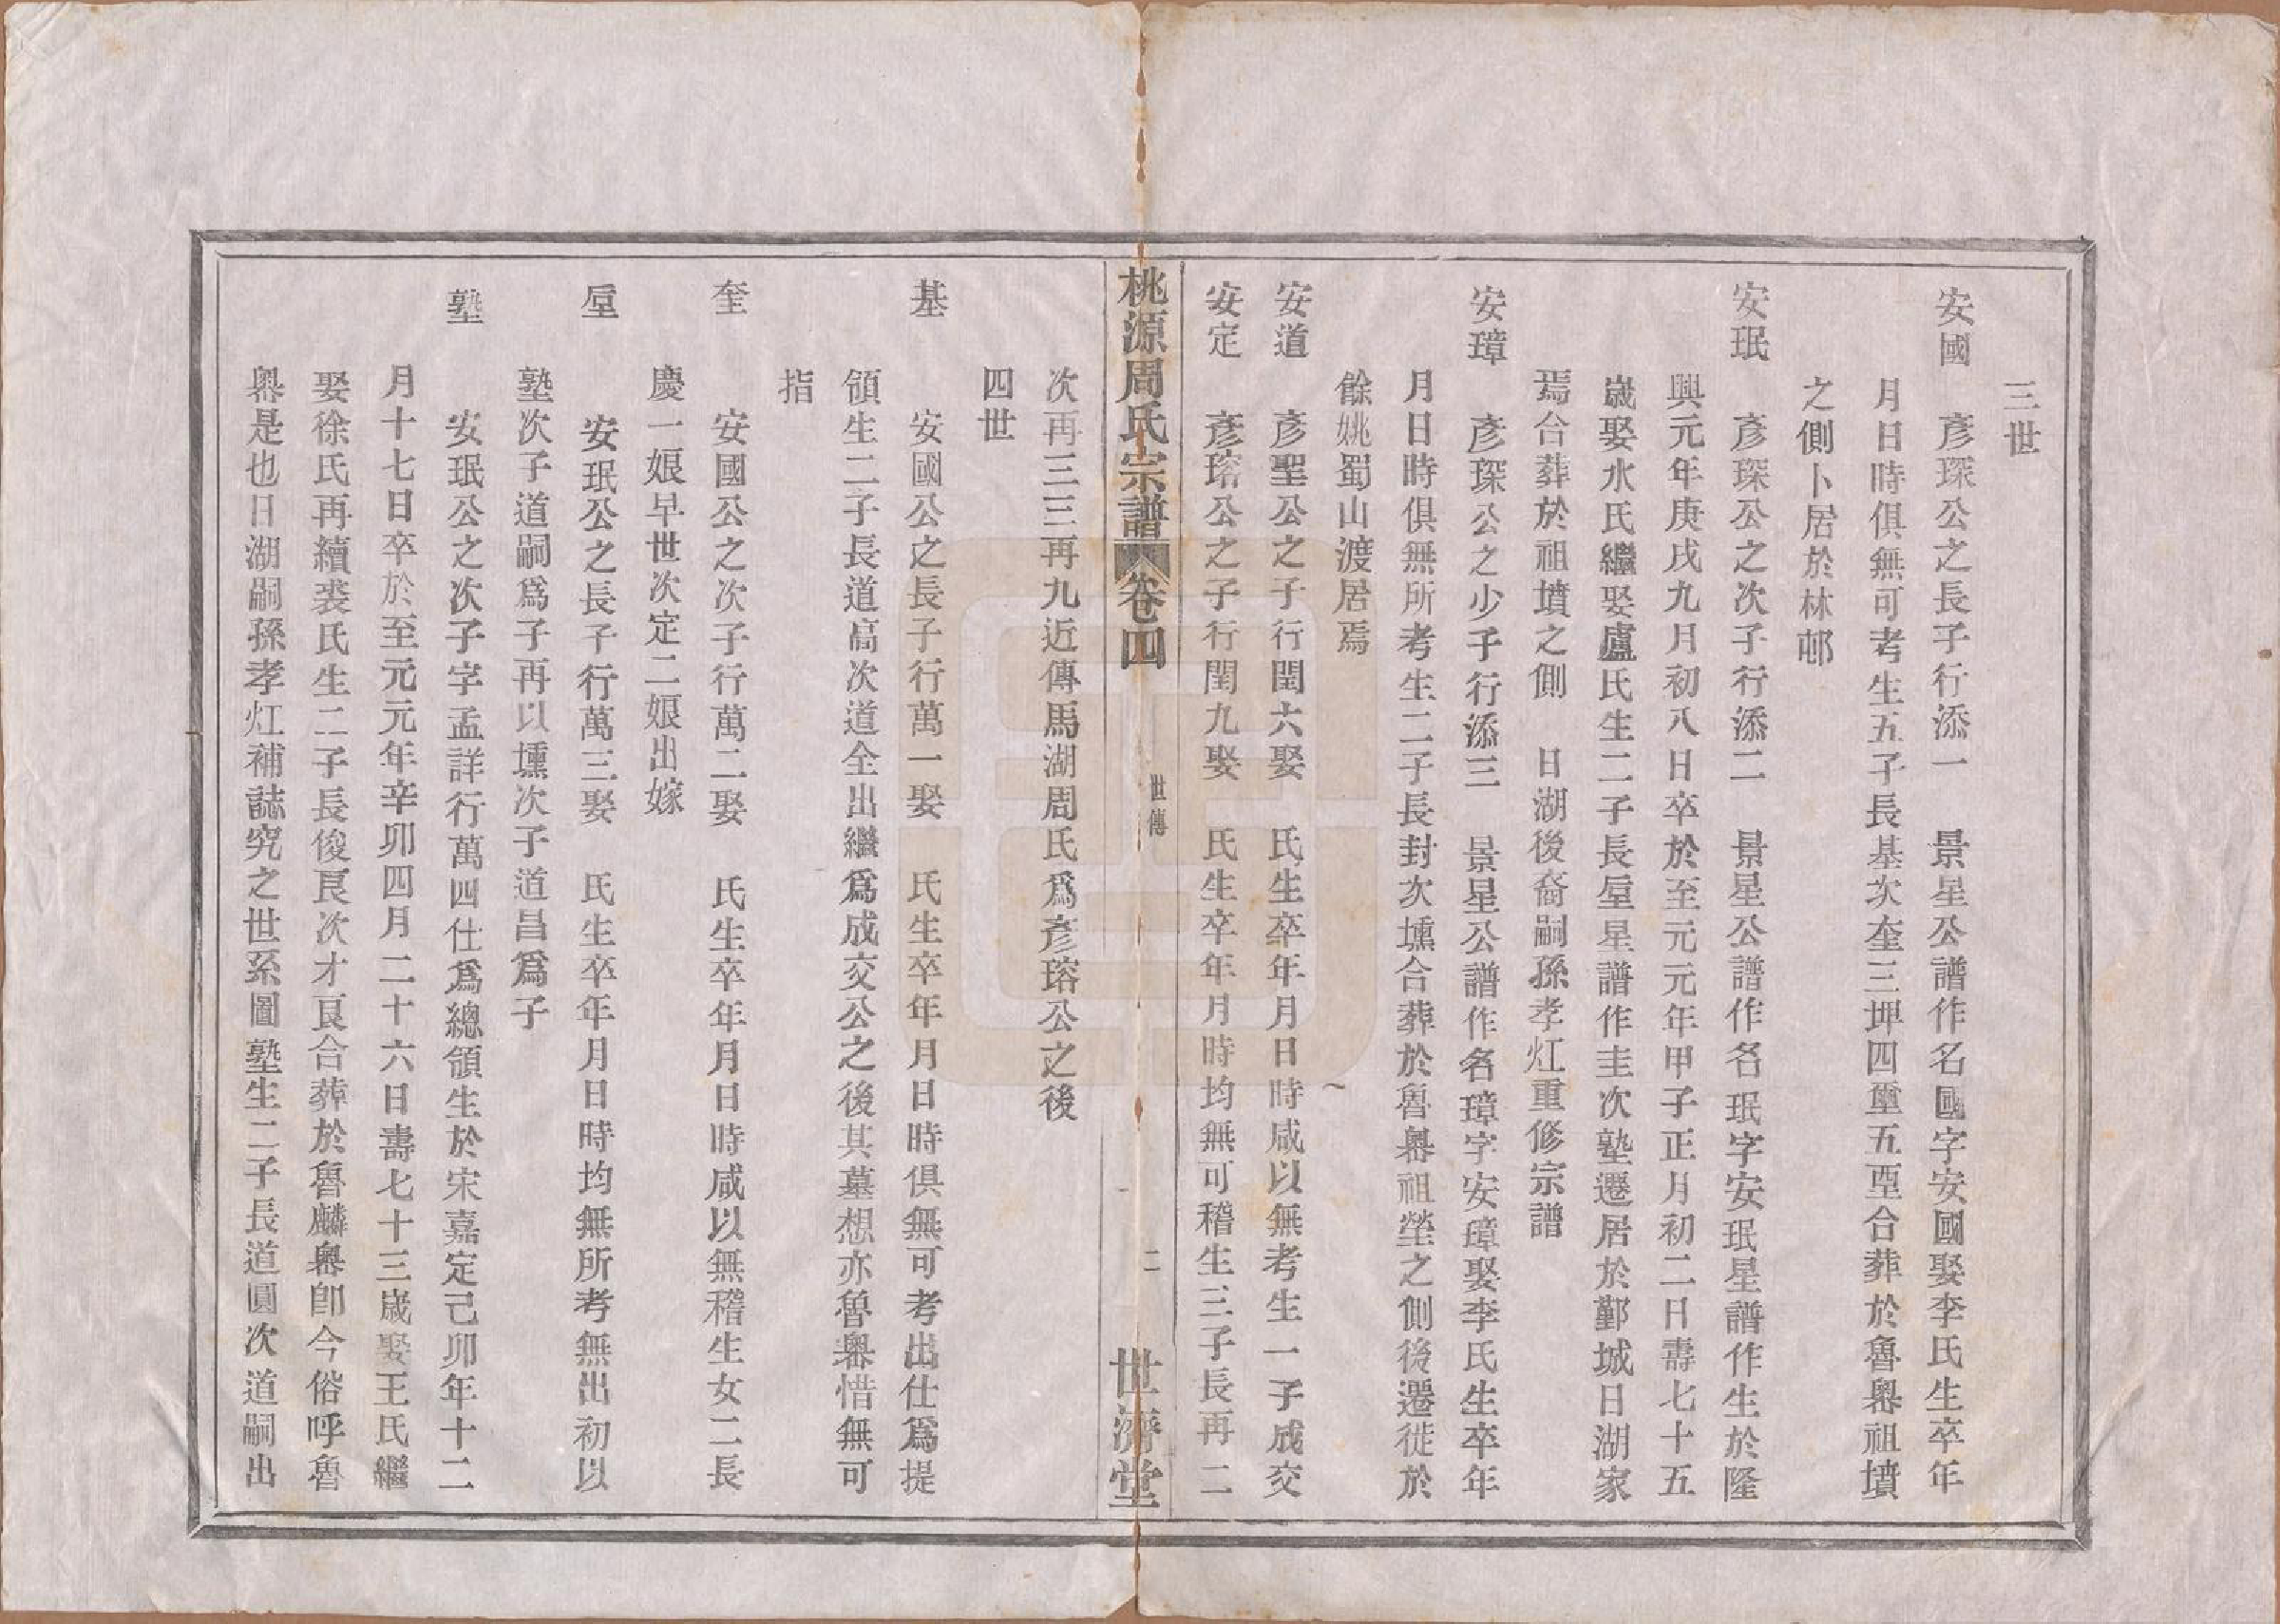 三世
安國　彥琛公之長子行添一　景星公譜作名國字安國娶李氏生卒年
月日時俱無可考生五子長基次奎三坤四壐五堊合葬於魯嶴祖墳
之側卜居於林邨
安珉　彥琛公之次子行添二　景星公譜作名珉字安珉星譜作生於隆
興元年庚戌九月初八日卒於至元元年甲子正月初二日壽七十五
歲娶水氏繼娶盧氏生二子長垕星譜作圭次塾遷居於鄞城日湖家
焉合葬於祖墳之側　日湖後裔嗣孫孝灴重修宗譜
安璋　彥琛公之少子行添三　景星公譜作名璋字安璋娶李氏生卒年
月日時俱無所考生二子長封次壎合葬於魯嶴祖塋之側後遷徙於
餘姚蜀山渡居焉
安道　彥聖公之子行閏六娶　氏生卒年月日時咸以無考生一子成交
安定　彥瑢公之子行閏九娶　氏生卒年月時均無可稽生三子長再二
桃源周氏宗譜　卷四　世傳　二　世濟堂
次再三三再九近傳馬湖周氏爲彥瑢公之後
四世
基　安國公之長子行萬一娶　氏生卒年月日時俱無可考出仕爲提
領生二子長道高次道全出繼爲成交公之後其墓想亦魯嶴惜無可
指
奎　安國公之次子行萬二娶　氏生卒年月日時咸以無稽生女二長
慶一娘早世次定二娘出嫁
垕　安珉公之長子行萬三娶　氏生卒年月日時均無所考無出初以
塾次子道嗣爲子再以壎次子道昌爲子
塾　安珉公之次子字孟詳行萬四仕爲總領生於宋嘉定己卯年十二
月十七日卒於至元元年辛卯四月二十六日壽七十三歲娶王氏繼
娶徐氏再續裘氏生二子長俊良次才良合葬於魯麟嶴卽今俗呼魯
嶴是也日湖嗣孫孝灴補誌究之世系圖塾生二子長道圓次道嗣出